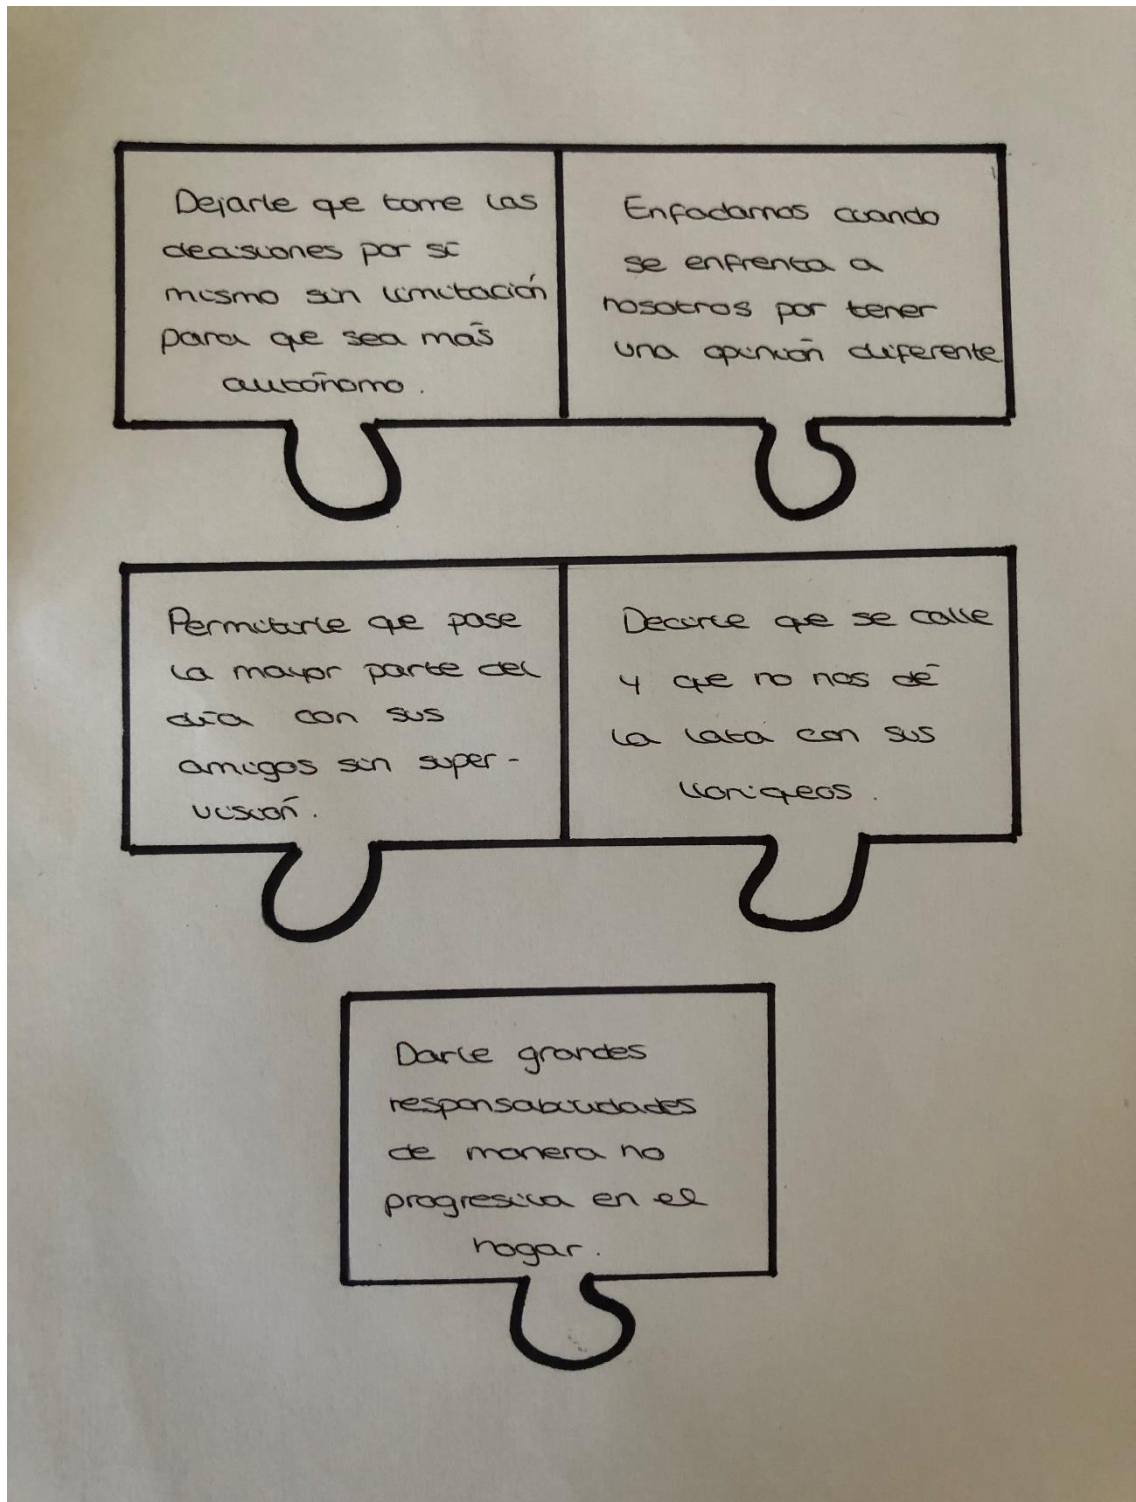 Dejarle que tome las
decisiones por sí
mismo sin limitación
para que sea más
autónomo.
Enfadarnos cuando
se enfrenta a
nosotros por tener
una opinión diferente
Permitirle que pase
la mayor parte del
día con sus
amigos sin super-
visión.
Decirle que se calle
y que no nos dé
la lata con sus
lloriqueos.
Darle grandes
responsabilidades
de manera no
progresiva en el
hogar.